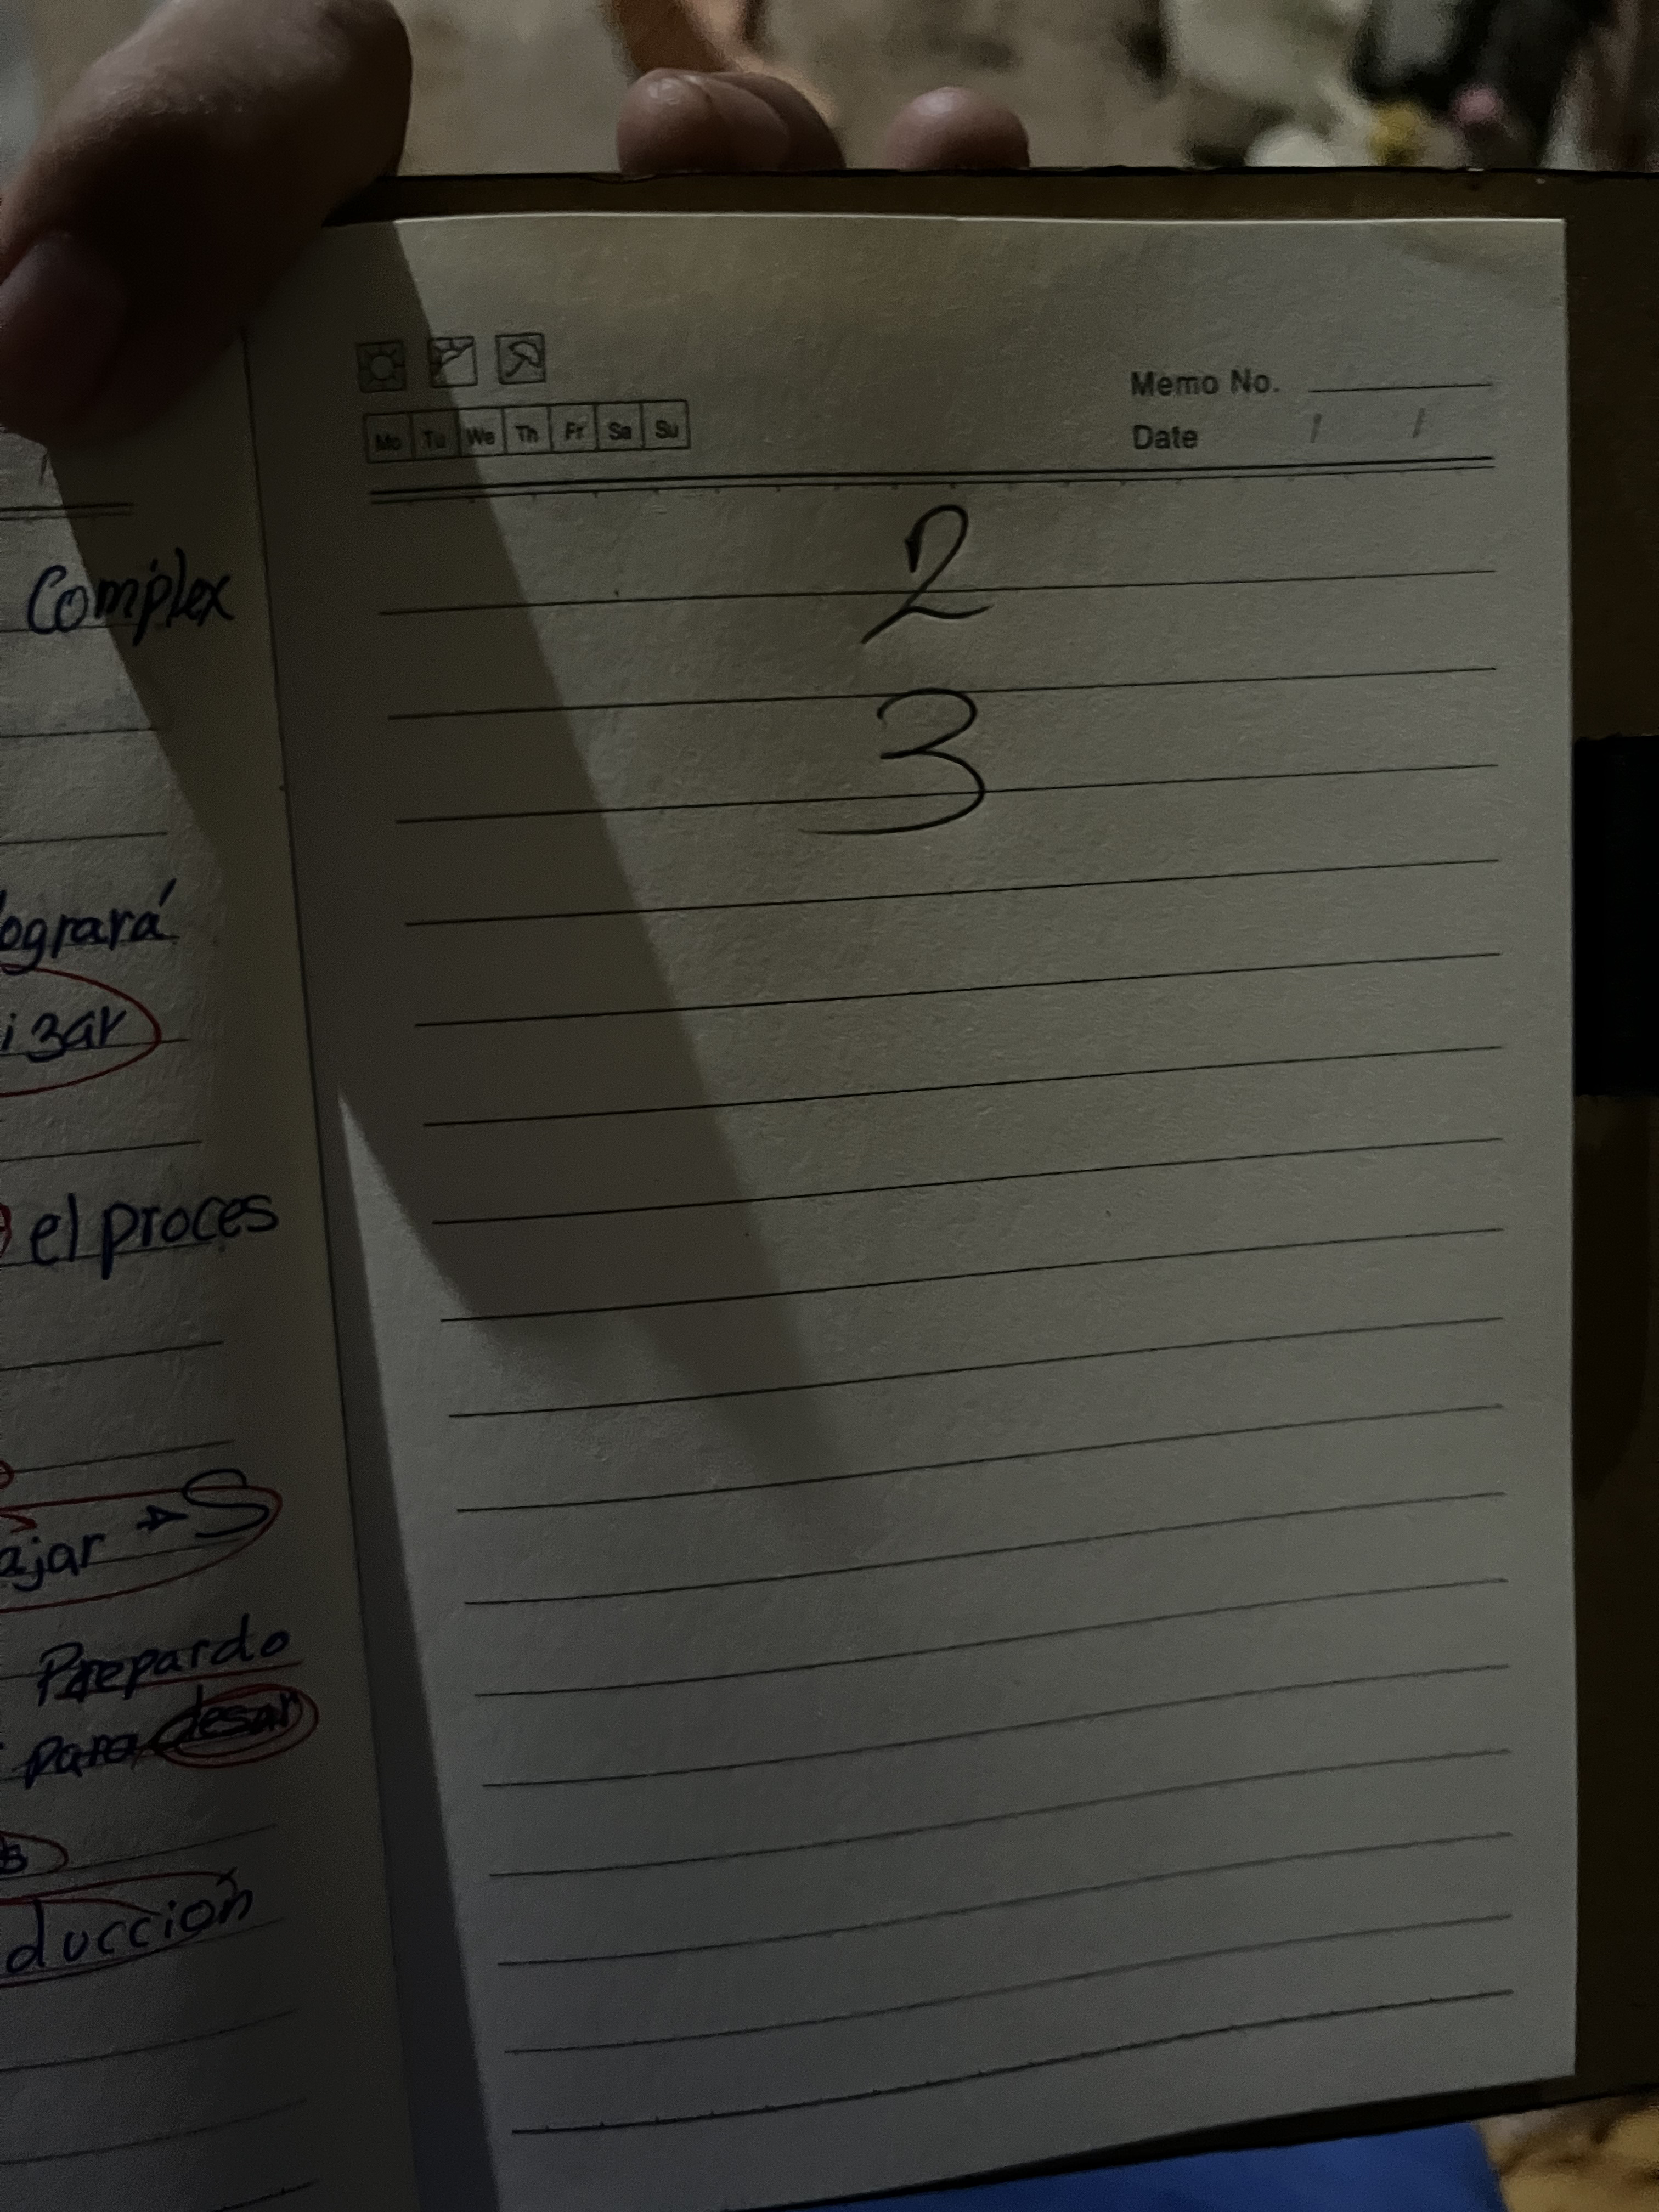 Complex
ogrará
izar
el proces
ajar → S
Prepardo
para desar
ducción
Memo No.
Mo Tu We Th Fr Sa Su
Date / /
2
3